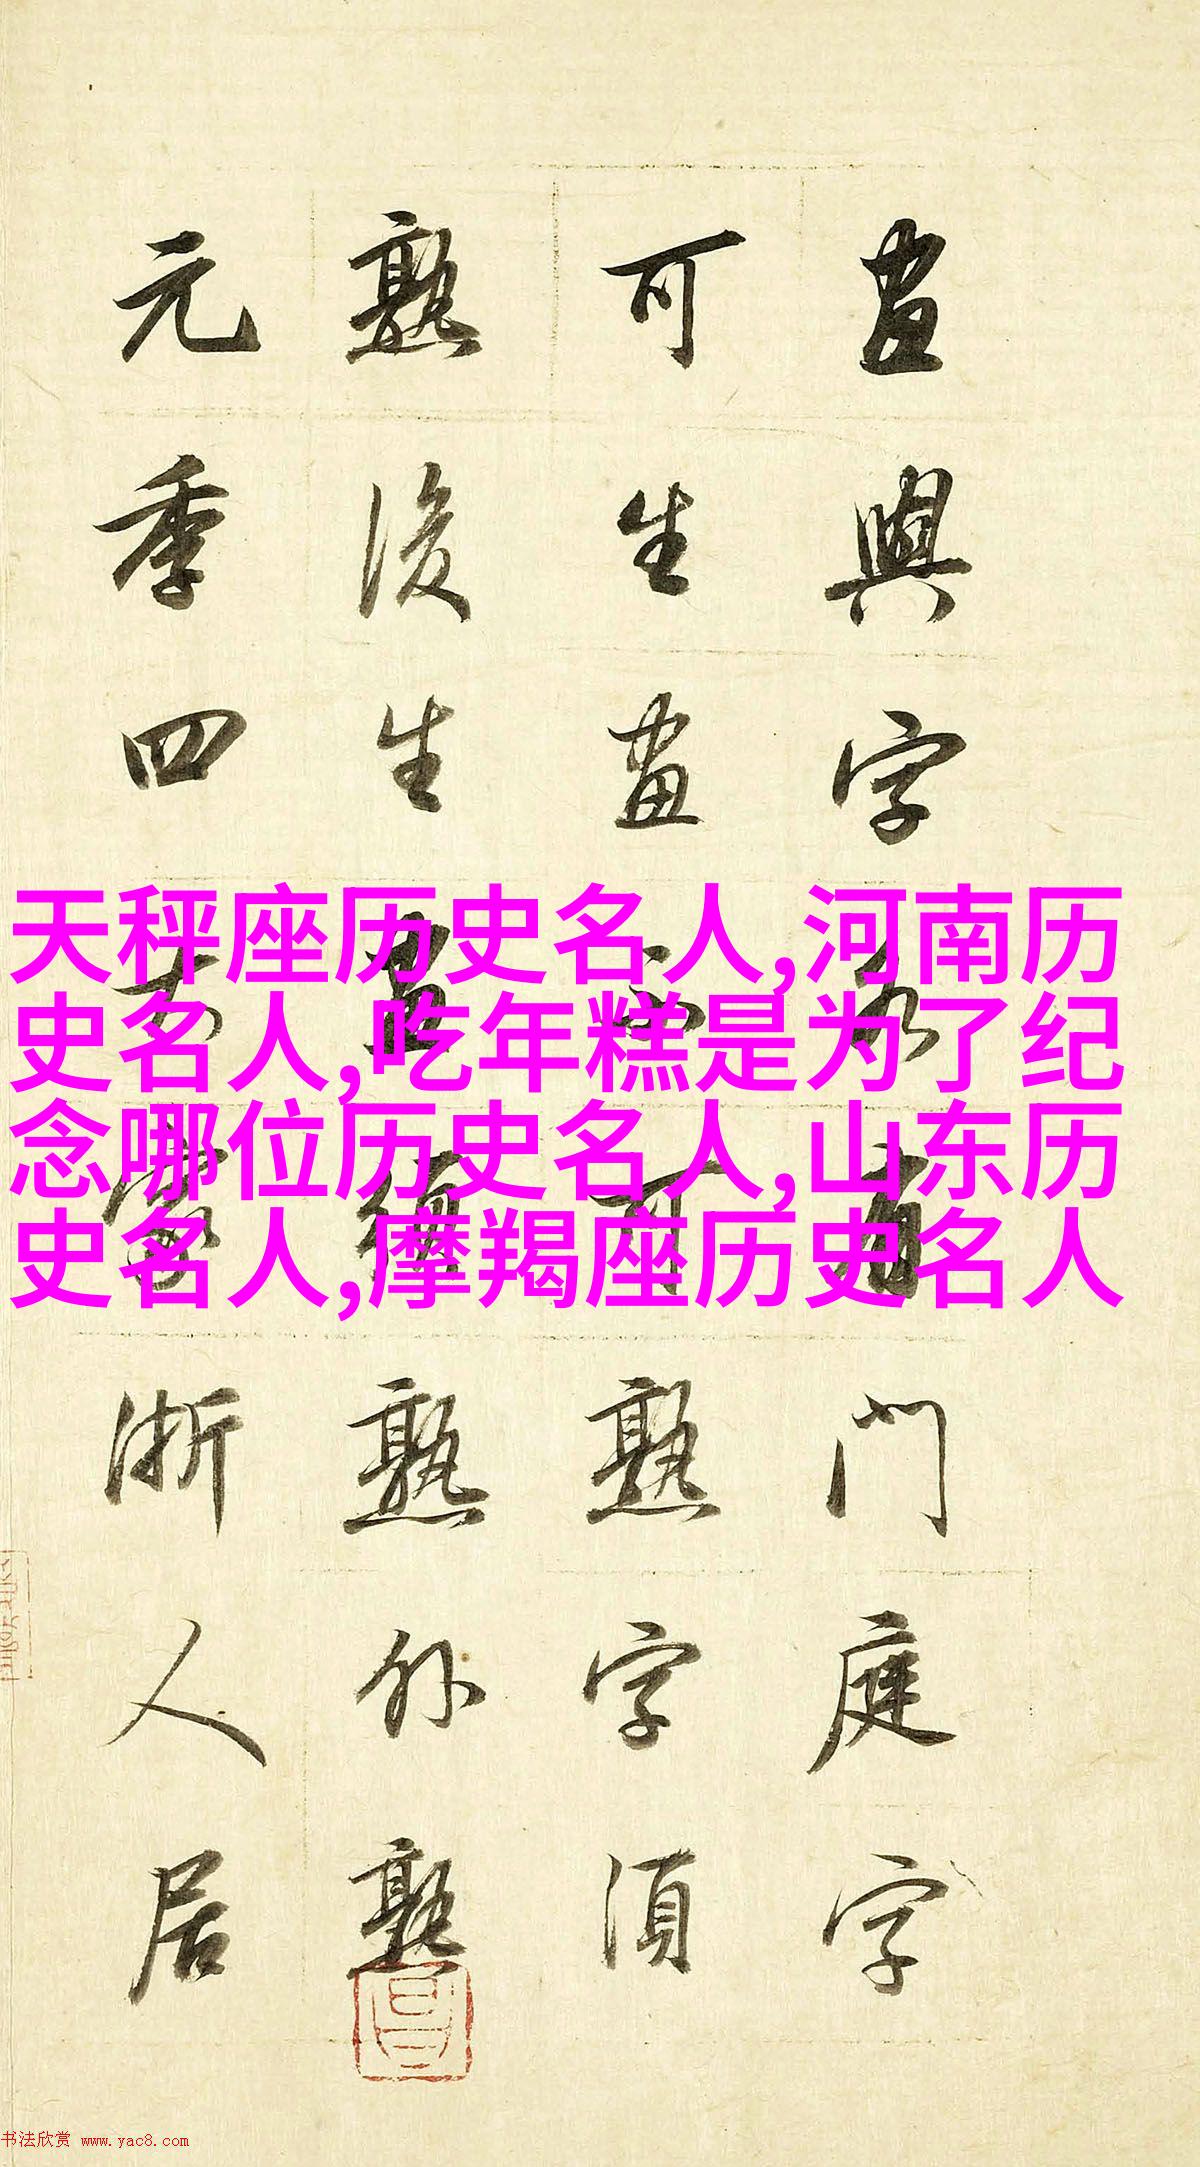 畫與字各有門庭字
可生畫不可熟字須
熟後生畫須熟外熟
元季四大家浙人居
天秤座历史名人,河南历
史名人,吃年糕是为了纪
念哪位历史名人,山东历
史名人,摩羯座历史名人
书法欣赏 www.yac8.com